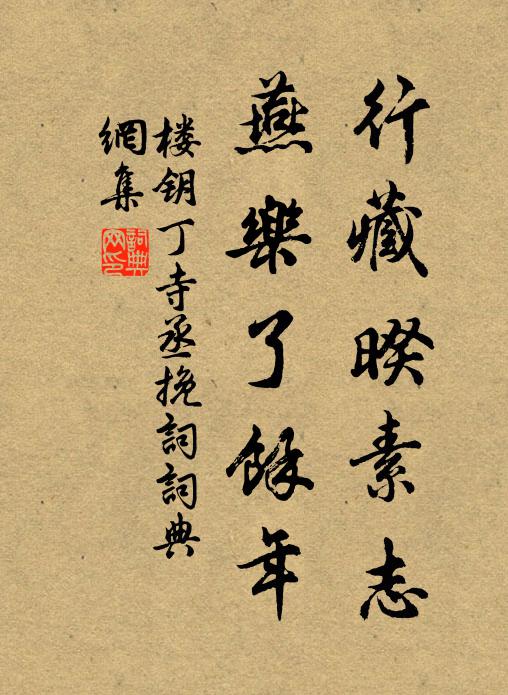 行藏睽素志
燕樂了餘年
楼钥丁寺丞挽詞詞典
網集
詞典網印